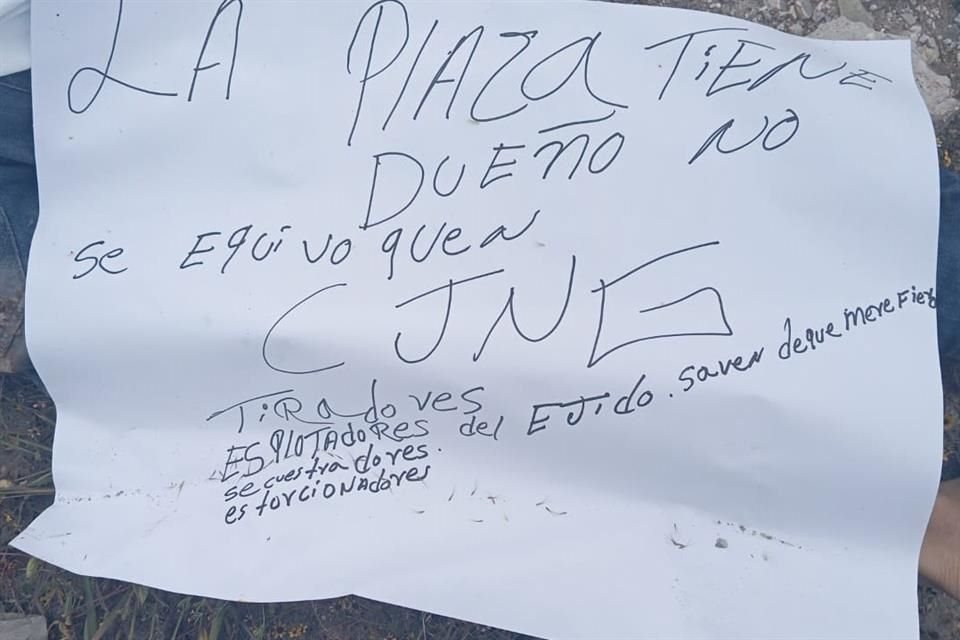 LA PLAZA TIENE
DUEÑO NO
SE EQUIVOQUEN
CJNG
TIRADORES
ESPLOTADORES del EJIDO. saven de que me refiero
secuestradores.
estorcionadores